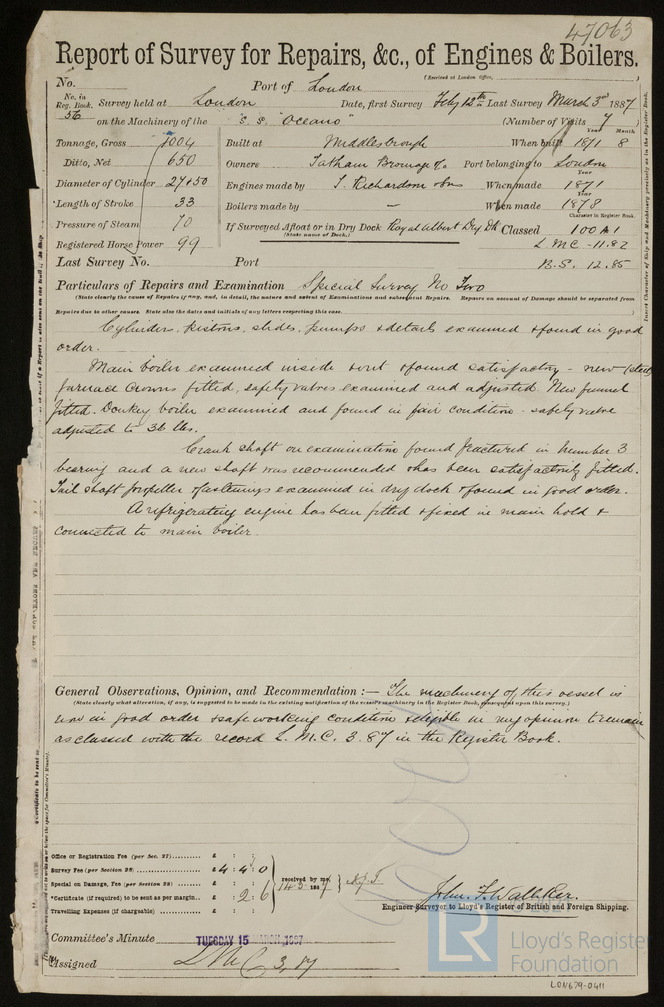 47063
Report of Survey for Repairs, &c., of Engines & Boilers.
(Received at London Office,
No. Port of London
No. in Reg. Book. Survey held at London Date, first Survey Feby 12th Last Survey March 3rd 1887
56 on the Machinery of the "S. S. "Oceano" (Number of Visits 7
Tonnage, Gross 1004 Built at Middlesbrough When built Year 1871 Month 8
Ditto, Net 650 Owners Tatham Bromage & Co Port belonging to London
Diameter of Cylinder 27+50 Engines made by T. Richardson & Sons When made Year 1871
Length of Stroke 33 Boilers made by — When made Year 1878
Pressure of Steam 70 If Surveyed Afloat or in Dry Dock Royal Albert Dry Dk Classed Character in Register Book. 100 A1
(State name of Dock.)
Registered Horse Power 99 L M C - 11.82
Last Survey No. Port B.S. 12.85
Particulars of Repairs and Examination Special Survey No Two
(State clearly the causes of Repairs if any, and, in detail, the nature and extent of Examinations and subsequent Repairs. Repairs on account of Damage should be separated from
Repairs due to other causes. State also the dates and initials of any letters respecting this case.)
Cylinders, pistons, slides, pumps & details examined & found in good
order.
Main boiler examined inside & out & found satisfactory - new (steel)
furnace crowns fitted, safety valves examined and adjusted. New funnel
fitted. Donkey boiler examined and found in fair condition - safety valve
adjusted to 36 lbs.
Crank shaft on examination found fractured in number 3
bearing and a new shaft was recommended & has been satisfactorily fitted.
Tail shaft propeller & fastenings examined in dry dock & found in good order.
A refrigerating engine has been fitted & fixed in main hold &
connected to main boiler.
General Observations, Opinion, and Recommendation :— The machinery of this vessel is
(State clearly what alteration, if any, is suggested to be made in the existing notification of the vessel's machinery in the Register Book, consequent upon this survey.)
now in good order & safe working condition & eligible in my opinion to remain
as classed with the record L. M. C. 3.87 in the Register Book.
Office or Registration Fee (per Sec. 27) £ : :
Survey Fee (per Section 28) £ 4 : 4 : 0
Special on Damage, Fee (per Section 28) £ : : received by me, 14.3.1887
*Certificate (if required) to be sent as per margin £ : 2 : 6
Travelling Expenses (if chargeable) £ : :
John F. Walliker.
Engineer Surveyor to Lloyd's Register of British and Foreign Shipping.
Committee's Minute TUESDAY 15 MARCH 1887
Assigned L M C 3,87
LR Lloyd's Register
Foundation
LON679-0411